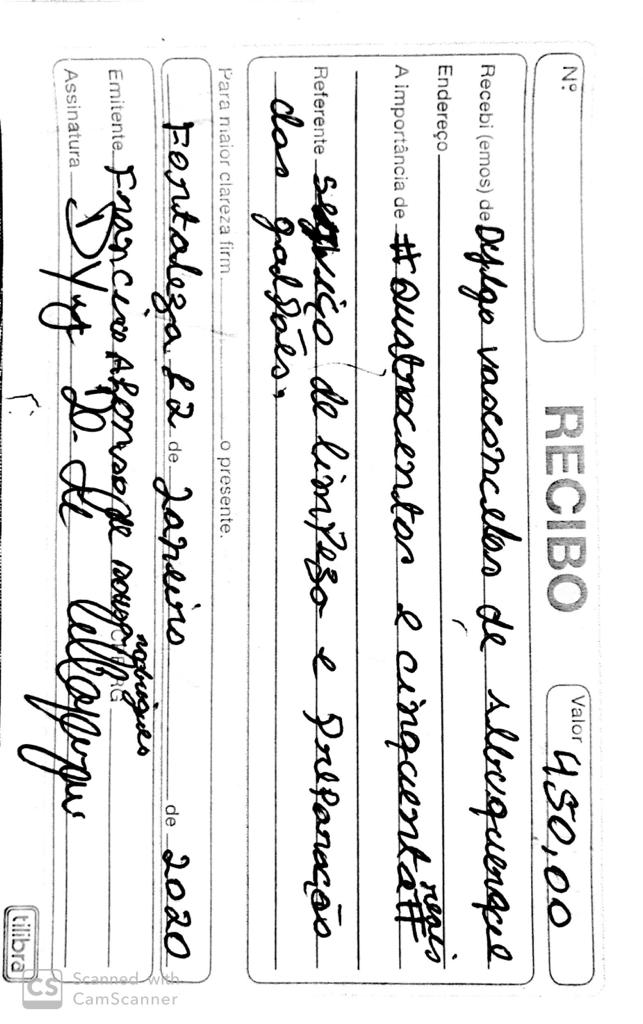 Nº RECIBO Valor 450,00
Recebi (emos) de Dyêgo vasconcelos de Albuquerque
Endereço
A importância de # Quatrocentos e cinquenta reais #
Referente serviço de limpeza e preparação
das galpões.
Para maior clareza firm o presente.
Fortaleza 12 de Janeiro de 2020
Emitente Francisco Afonso de sousa rodrigues
Assinatura
tilibra
CS Scanned with
CamScanner